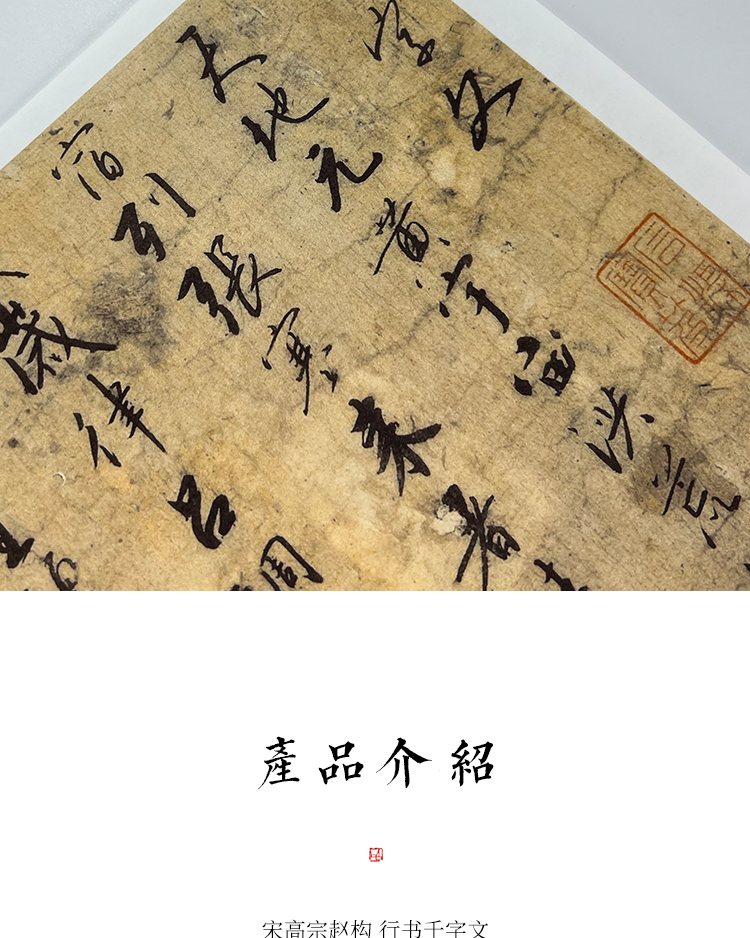 字文
天地元黄宇宙洪荒
宿列張寒来暑
歲律呂調
產品介紹
宋高宗赵构 行书千字文